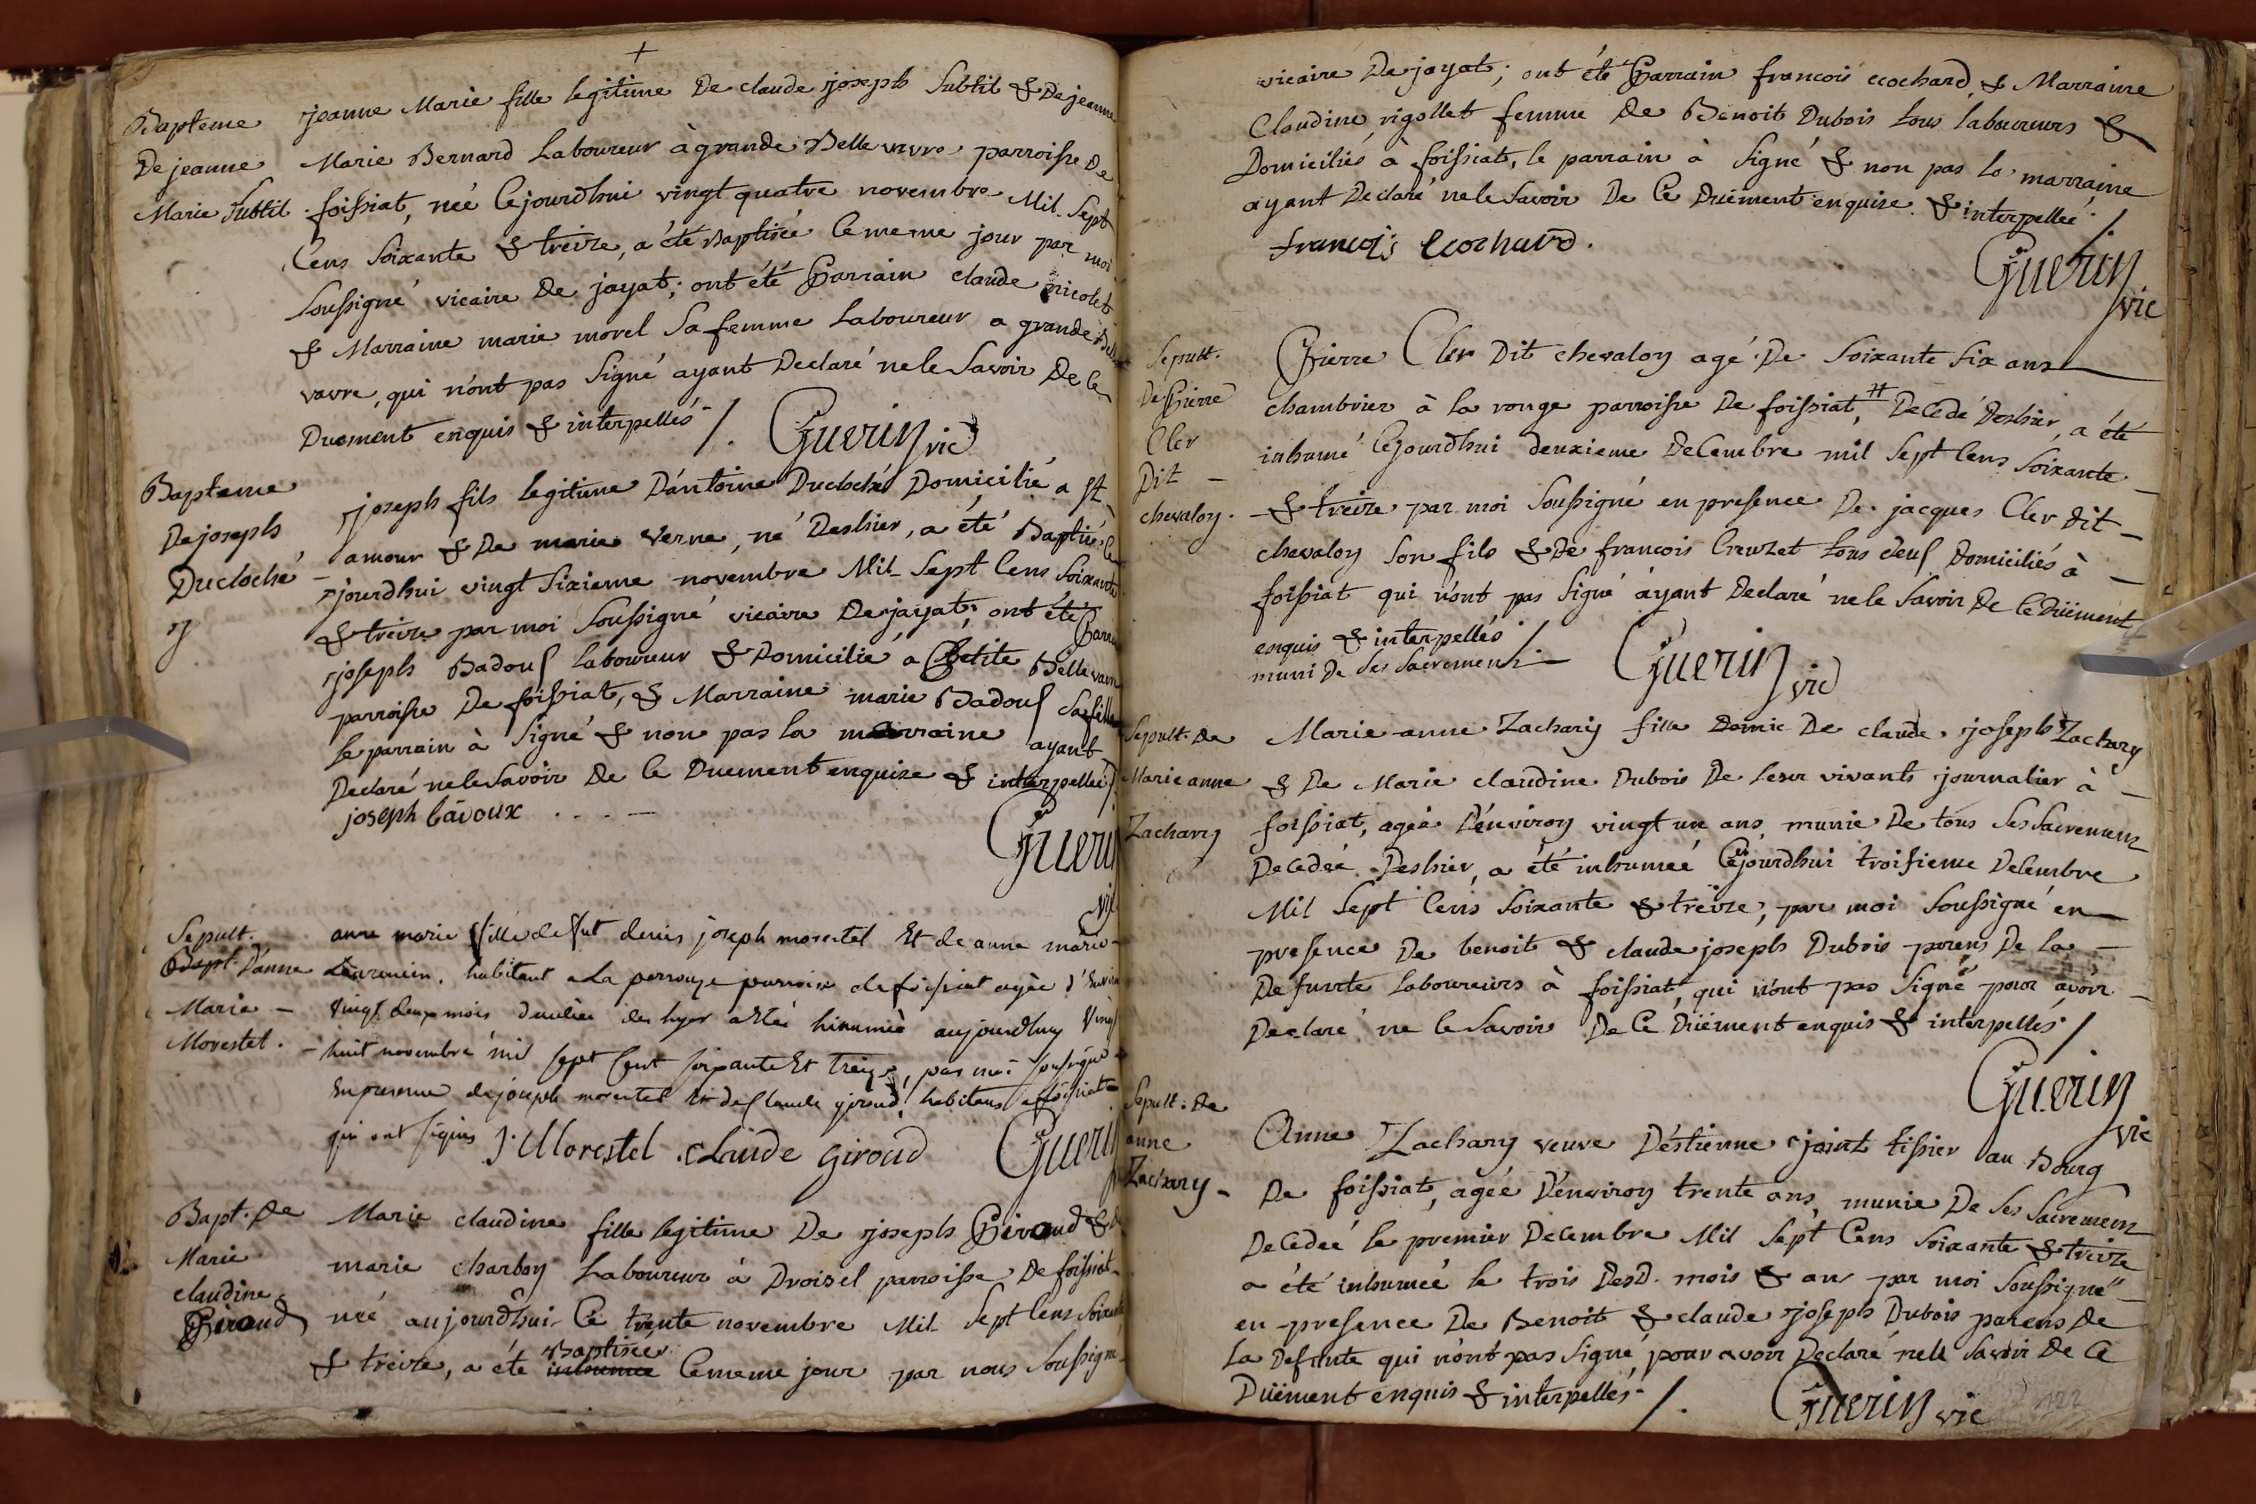 +
Bapteme
De jeanne
Marie Subtil
jeanne Marie fille legitime De claude joseph Subtil & De jeanne
Marie Bernard Laboureur à grande Belle vavre parroisse De
foissiat, née Cejourdhui vingt quatre novembre Mil Sept
Cens Soixante & treize, a été Baptisée le meme jour par moi
Soussigné vicaire De jayat; ont été Parrain claude nicolet
& Marraine marie morel Sa femme Laboureur a grande Belle
vavre, qui n'ont pas Signé ayant Declaré ne le Savoir De Ce
Duement enquis & interpellés ./.
Guerin vic
Bapteme
De joseph
Ducloché
joseph fils legitime D'antoine Ducloché Domicilié a St
amour & De marie Verne, né Deshier, a été Baptisé Ce
jourdhui vingt Sixieme novembre Mil Sept Cens Soixante
& treize par moi Soussigné vicaire De jayat; ont été Parrain
joseph Badouf Laboureur & Domicilié a Petite Bellevavre
parroisse De foissiat, & Marraine marie Badouf Sa fille
le parrain à Signé & non pas la marraine ayant
Declaré ne le Savoir De Ce Duement enquise & interpellée
joseph badoux
Guerin
vic
Sepult.
Bapt. D'anne
Marie
Morestel.
anne marie fille de fut denis joseph morestel Et de anne marie
habitant a La perrouze parroisse de foissiat agée d'Environ
vingt deux mois de hyer a Eté hinumée aujourdhuy Vingt
huit novembre mil sept Cent soixante Et treize, par moi soussigné
En presence de joseph morestel Et de Claude giroud, habitans a foissiat
qui ont signés J. Morestel Claude Giroud
Guerin
Bapt. De
Marie
claudine
Giroud
Marie claudine fille legitime De joseph Giroud & De
marie charbon Laboureur à Droisel parroisse De foissiat
née aujourdhui Ce trente novembre Mil Sept Cens Soixante
& treize, a été inhumée Baptisée Ce meme jour par nous Soussigné
vicaire De jayat; ont été Parrain francois ecochard & Marraine
Claudine rigollet femme De Benoit Dubois tous laboureurs &
Domiciliés à foissiat, le parrain à Signé & non pas la marraine
ayant Declaré ne le Savoir De Ce Düement enquise & interpellée ./
francois Ecochard.
Guerin
vic
Sepult.
De Pierre
Cler
Dit
chevalon.
Pierre Cler Dit chevalon agé De Soixante Six ans
chambrier à la rouge parroisse De foissiat, # Decedé Deshier, a été
inhumé Cejourdhui deuxieme Decembre mil Sept Cens Soixante
& treize par moi Soussigné en presence De jacques Cler Dit
chevalon Son fils & De francois Creuzet tous deuf Domiciliés à
foissiat qui n'ont pas Signé ayant Declaré ne le Savoir De Ce Düement
enquis & interpellés ./
muni De Ses Sacremens.
Guerin vic
Sepult. De
Marie anne
Zachary
Marie anne Zachary fille Domic De claude joseph Zachary
& De Marie claudine Dubois De leur vivants journalier à
foissiat, agée D'environ vingt un ans, munie De tous Ses Sacremens
Decedée Deshier, a été inhumée Cejourdhui troisieme Decembre
Mil Sept Cens Soixante & treize, par moi Soussigné en
presence De benoit & claude joseph Dubois parens De la
Defunte Laboureurs à foissiat, qui n'ont pas Signé pour avoir
Declaré ne le Savoir De Ce Düement enquis & interpellés ./
Guerin
vic
Sepult. De
anne
Zachary
Anne Zachary veuve D'estienne joint tissier au Bourg
De foissiat, agée D'environ trente ans, munie De Ses Sacremens
Decedée le premier Decembre Mil Sept Cens Soixante & treize
a été inhumée le trois DesD. mois & an par moi Soussigné
en presence De Benoit & claude joseph Dubois parens De
la Defunte qui n'ont pas Signé pour avoir Declaré ne le Savoir De Ce
Düement enquis & interpellés ./.
Guerin vic